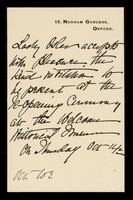 13, NORHAM GARDENS,
OXFORD.
Lady Osler accepts
with pleasure the
kind invitation to
be present at the
Reopening Ceremony
at the Wellcome
Historical Museum
On Thursday Oct 14th